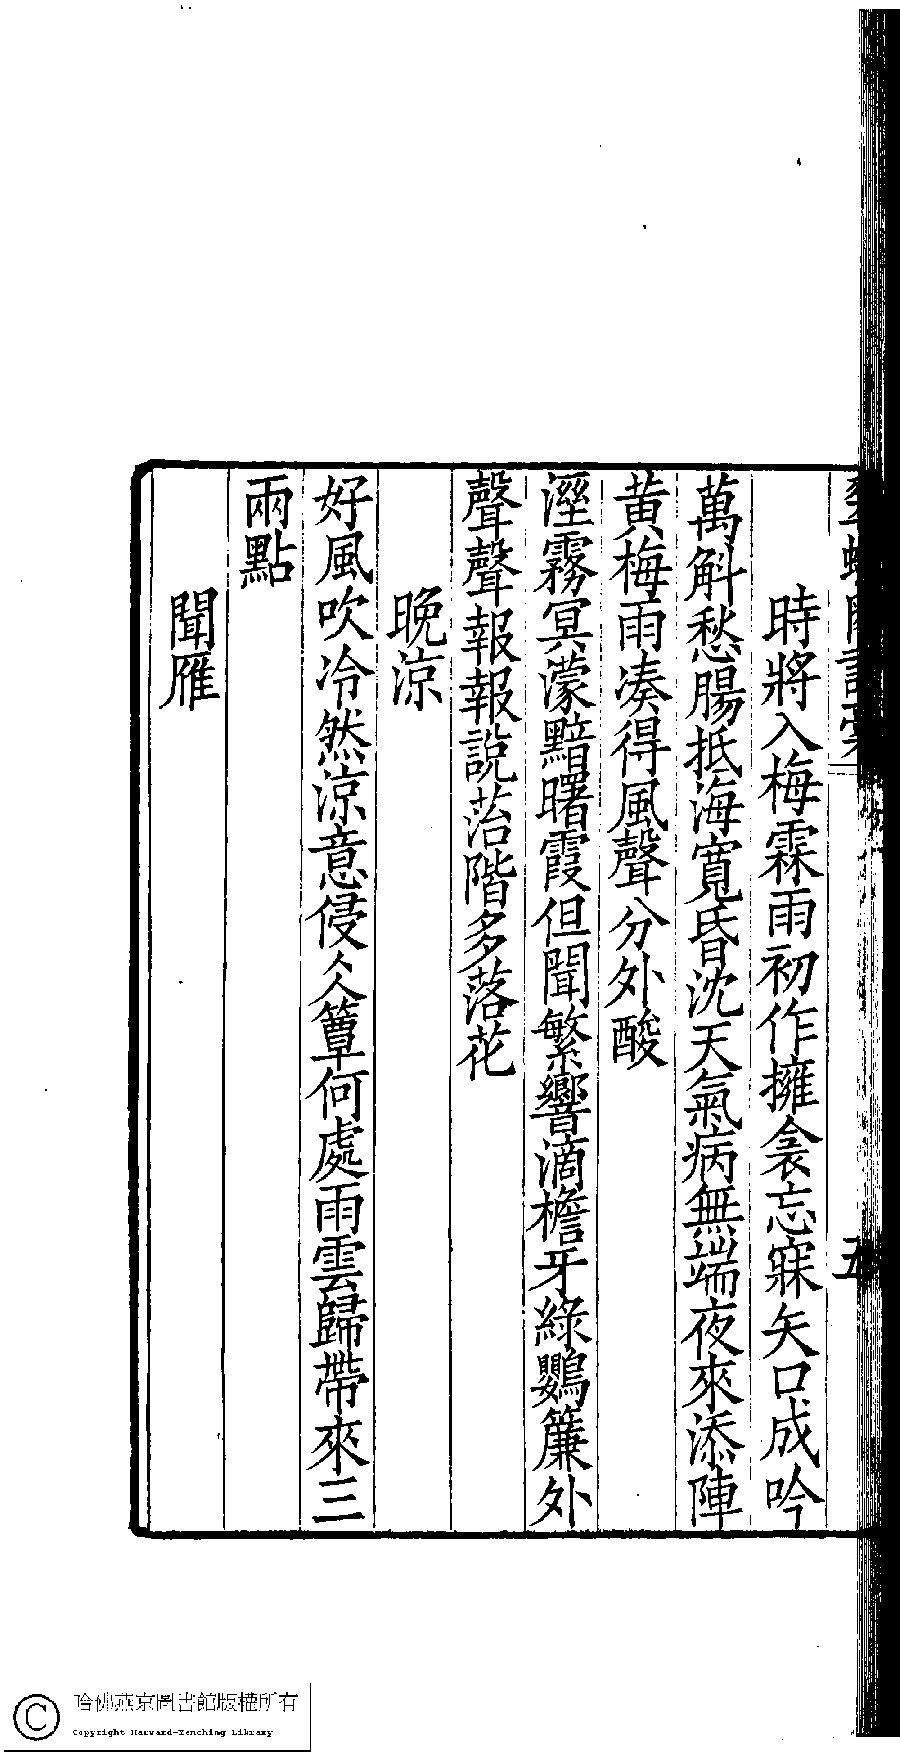 時將入梅霖雨初作擁衾忘寐矢口成吟
萬斛愁腸抵海寬昏沈天氣病無端夜來添陣
黃梅雨湊得風聲分外酸
溼霧冥濛黯曙霞但聞繁響滴檐牙綠鸚簾外
聲聲報報說菭階多落花
晚涼
好風吹冷然涼意侵久簟何處雨雲歸帶來三
兩點
聞雁
五
哈佛燕京圖書館版權所有
Copyright Harvard-Yenching Library